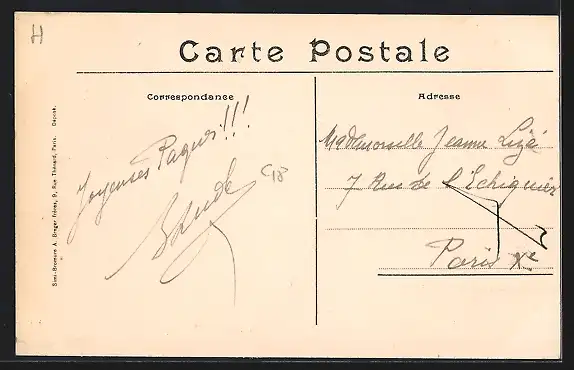 H
Carte Postale
Correspondance
Joyeuses Paques!!!
C18
Adresse
Mademoiselle Jeanne Lizé
7 Rue de l'Echiquier
Paris Xe
Simi-Bromure A. Breger frères, 9, Rue Thénard, Paris. Déposé.